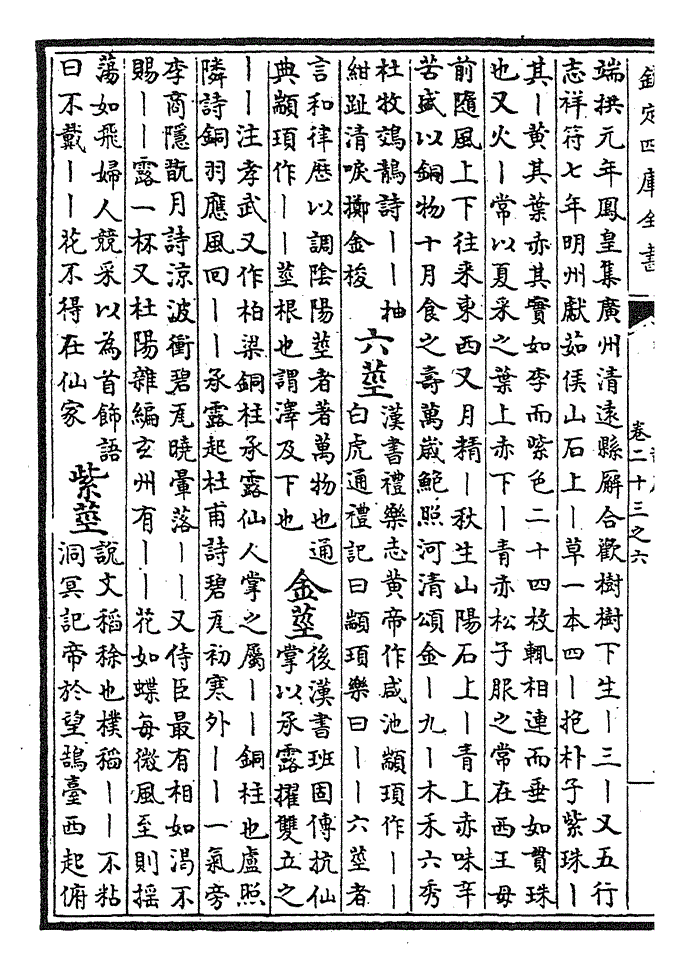 欽定四庫全書
卷二十三之六
端拱元年鳳皇集廣州清遠縣廨合歡樹樹下生丨三丨又五行
志祥符七年明州獻茹侯山石上丨草一本四丨抱朴子紫珠丨
其丨黄其葉赤其實如李而紫色二十四枚輒相連而垂如貫珠
也又火丨常以夏采之葉上赤下丨青赤松子服之常在西王母
前隨風上下往来東西又月精丨秋生山陽石上丨青上赤味辛
苦盛以銅物十月食之壽萬嵗鮑照河清頌金丨九丨木禾六秀
杜牧鵁鶄詩丨丨抽
紺趾清唳擲金梭
六莖
漢書禮樂志黄帝作咸池顓頊作丨丨
白虎通禮記曰顓頊樂曰丨丨六莖者
言和律歴以調陰陽莖者著萬物也通
典顓頊作丨丨莖根也謂澤及下也
金莖
後漢書班固傳抗仙
掌以承露擢雙立之
丨丨注孝武又作柏梁銅柱承露仙人掌之屬丨丨銅柱也盧照
隣詩銅羽應風回丨丨承露起杜甫詩碧瓦初寒外丨丨一氣旁
李商隱翫月詩涼波衝碧瓦曉暈落丨丨又侍臣最有相如渴不
賜丨丨露一杯又杜陽雜編玄州有丨丨花如蝶每微風至則揺
蕩如飛婦人競采以為首飾語
曰不戴丨丨花不得在仙家
紫莖
說文稻稌也樸稻丨丨不粘
洞冥記帝於望鵠臺西起俯